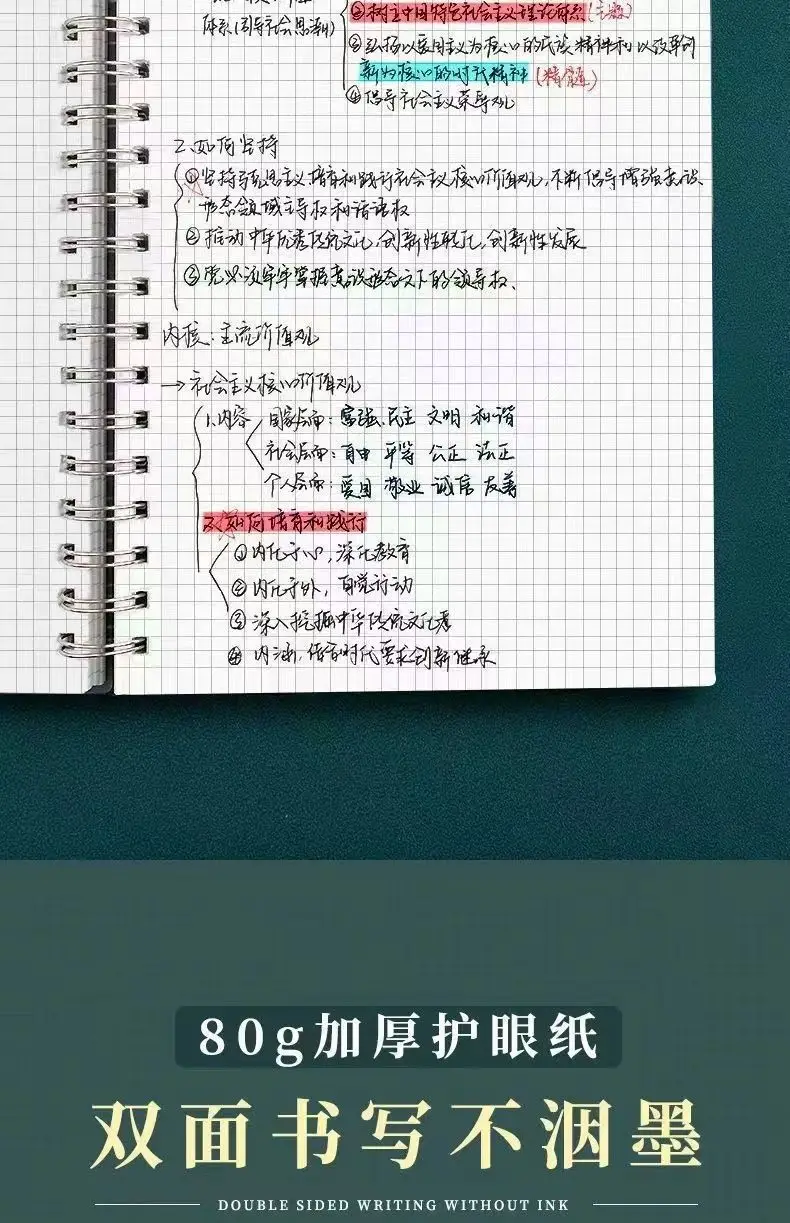 体系(引导社会思潮)
②树立中国特色社会主义理论体系(主题)
③弘扬以爱国主义为核心的民族精神和以改革创
新为核心的时代精神(精髓)
④倡导社会主义荣辱观
2.如何坚持
①坚持马克思主义,培育和践行社会主义核心价值观,不断倡导增强意识
形态领域主导权和话语权
②推动中华优秀传统文化,创新性转化,创新性发展
③党必须牢牢掌握意识形态工作的领导权、
内核:主流价值观
→社会主义核心价值观
1.内容 国家层面:富强、民主 文明 和谐
社会层面:自由 平等 公正 法正
个人层面:爱国 敬业 诚信 友善
2.如何培育和践行
①内化于心,深化教育
②内化于外,自觉行动
③深入挖掘中华传统文化
④内涵,结合时代要求创新继承
80g加厚护眼纸
双面书写不洇墨
DOUBLE SIDED WRITING WITHOUT INK